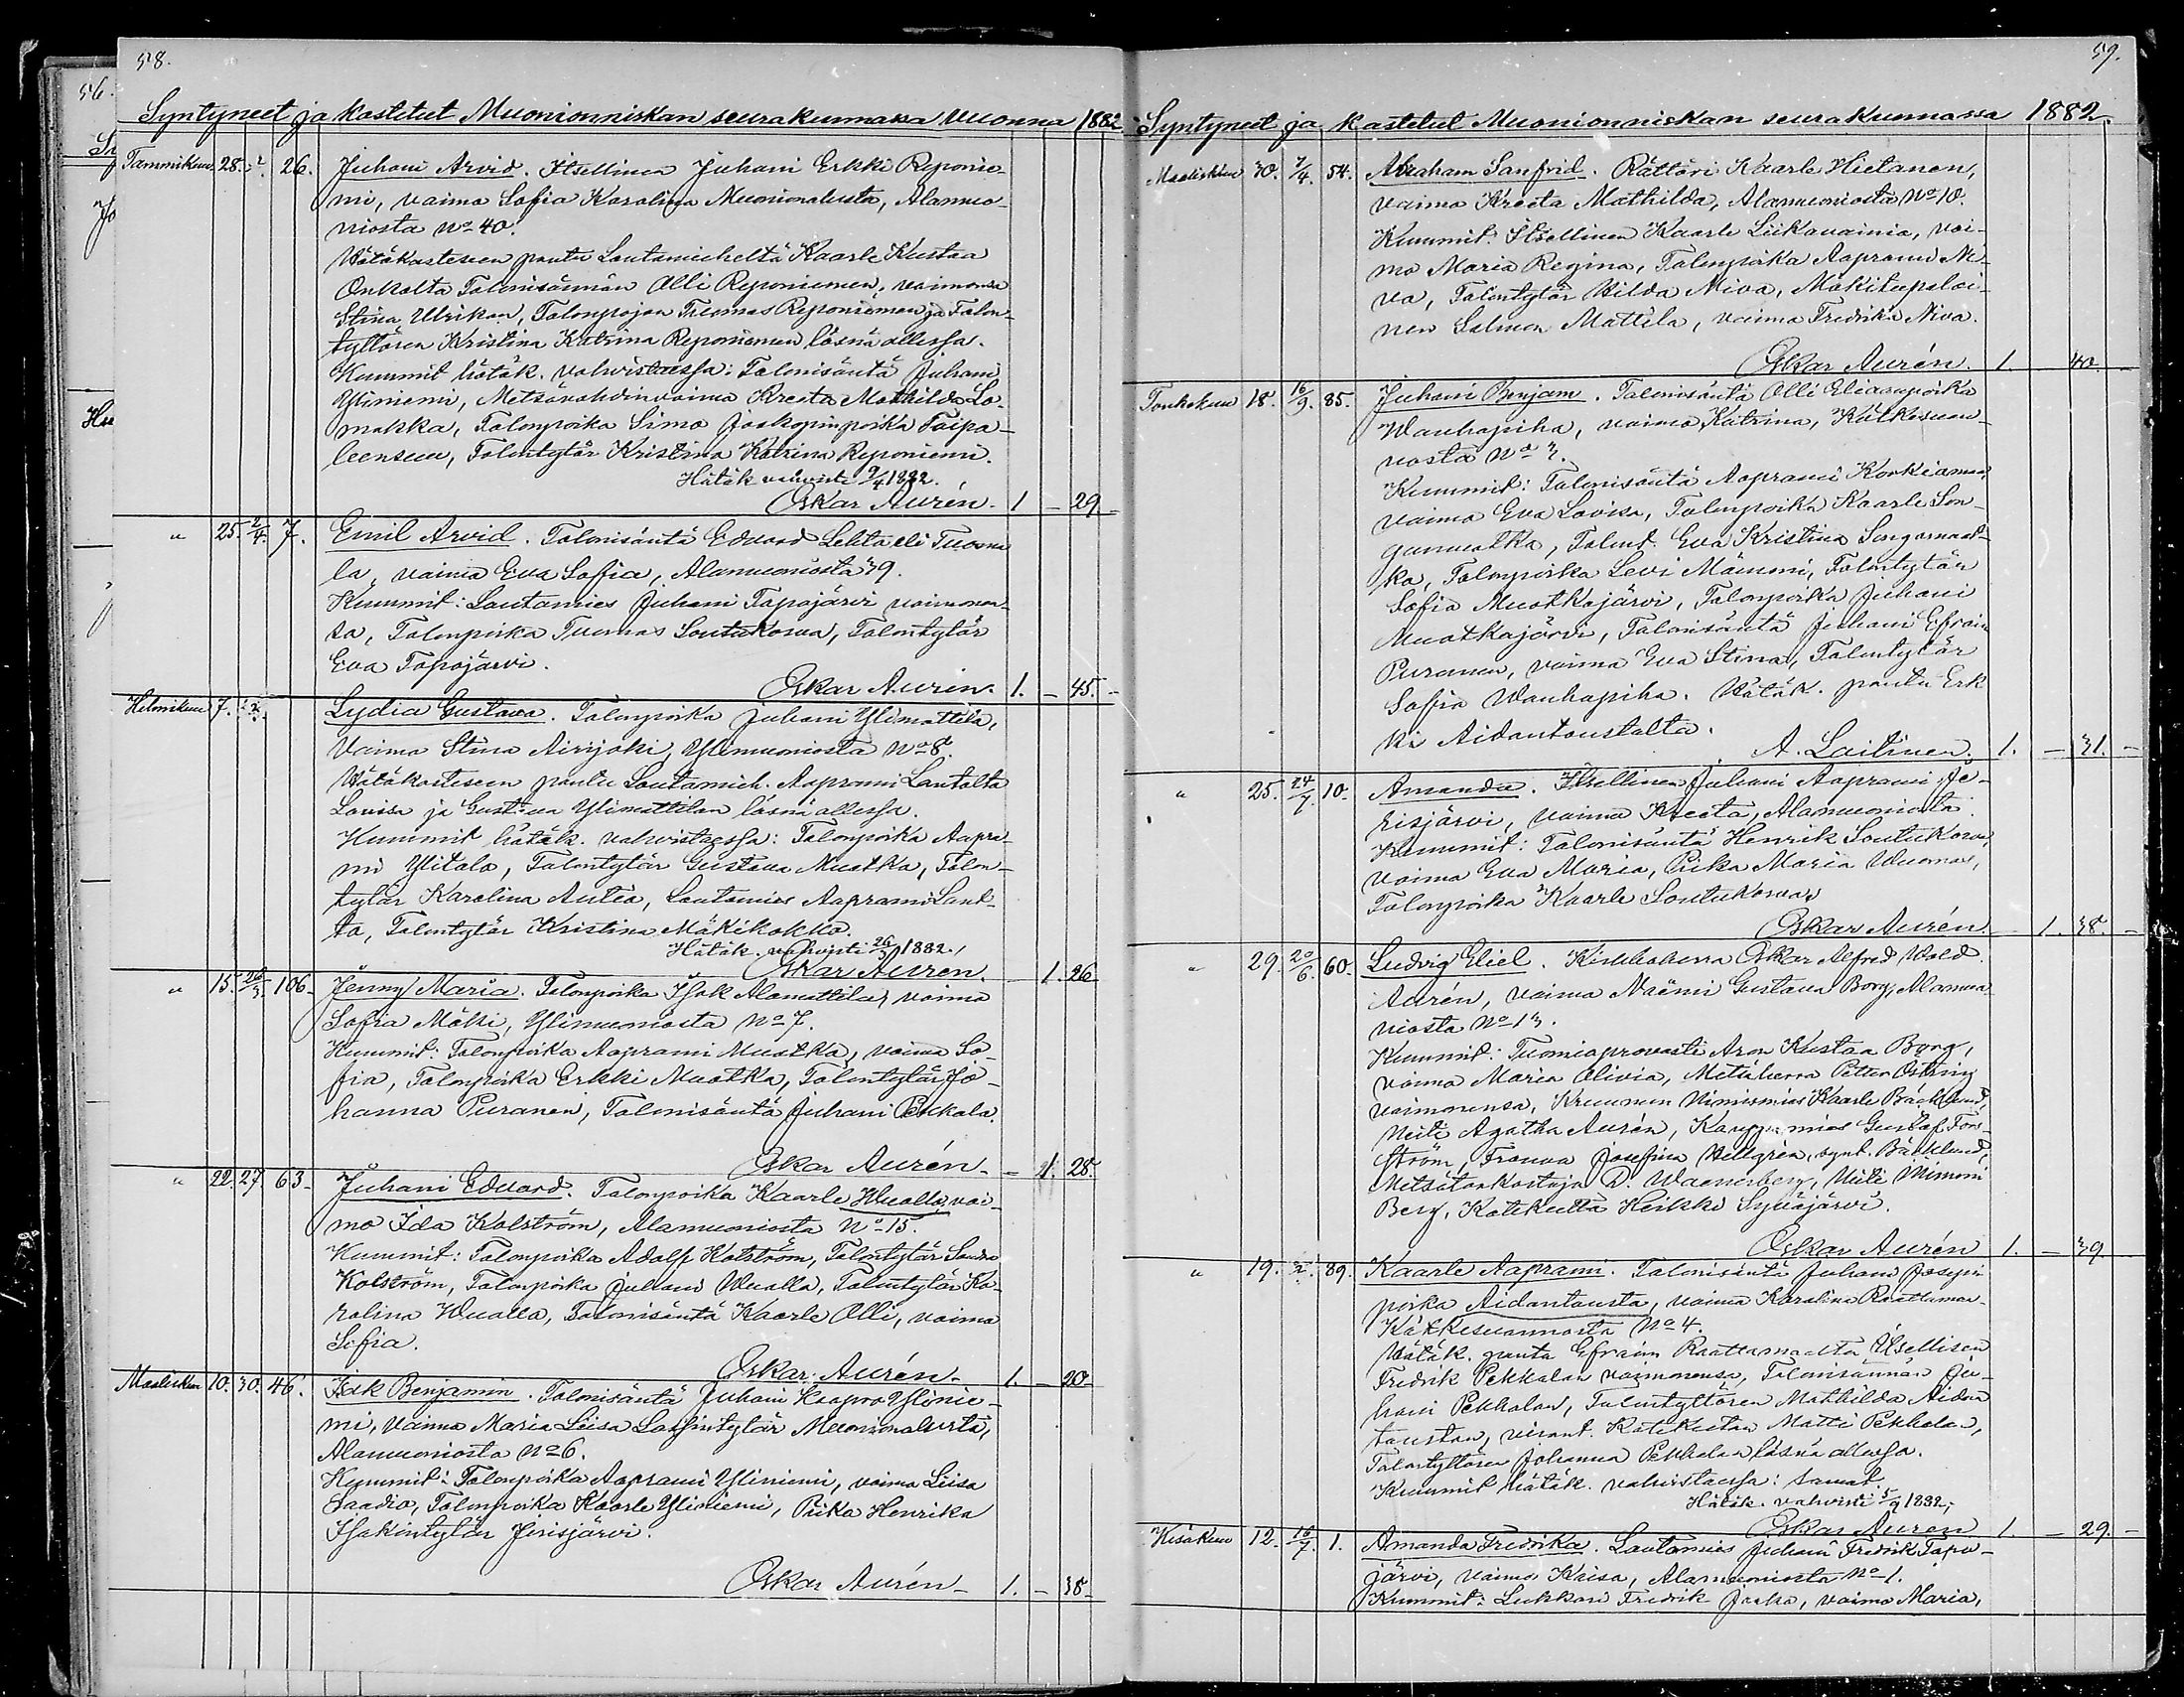 58.
56.
Syntyneet ja kastetut Muonionniskan seurakunnassa vuonna 1882
Tammikuu 28. 26. Juhani Arvid. Itsellinen Juhani Erkki Reponie-
mi, vaimo Sofia Karolina Muonionalusta, Alamuo-
niosta No 40.
Hätäkasteseen pantu Lautamieheltä Kaarle Kustaa
Onkalta Talonisännän Olli Reponiemen, vaimonsa
Stina Ulrikan, Talonpojan Thomas Reponiemen ja Talon-
tyttären Kristina Katrina Reponiemen läsnä ollessa.
Kummit hätäk. vahvistaessa: Talonisäntä Juhani
Yliniemi, Metsävahdin vaimo Kreeta Mathilda Lo-
makka, Talonpoika Simo Jaakopinpoika Taipa-
leensuu, Talontytär Kristina Katrina Reponiemi.
Hätäk vahvisti 9/4 1882.
Oskar Aurén. 1 – 29
" 25. 2/4. 7. Emil Arvid. Talonisäntä Edvard Lehto eli Tuoma
la, vaimo Eva Sofia, Alamuoniosta 39.
Kummit: Lautamies Juhani Tapojärvi vaimonen-
sa, Talonpoika Tuomas Soutukorva, Talontytär
Eva Tapojärvi.
Oskar Aurén. 1. – 45.
Helmikuu 7. Lydia Gustava. Talonpoika Juhani Ylimattila,
Vaimo Stina Airijoki, Ylimuoniosta No 8.
Hätäkasteseen pantu Lautamieh. Aaprami Lantolta
Lovisa ja Gustava Ylimattilan läsnä ollessa.
Kummit hätäk. vahvistaessa: Talonpoika Aapra-
mi Ylitalo, Talontytär Gustava Muotka, Talon-
tytär Karolina Autio, Lautamies Aaprami Lant-
to, Talontytär Kristina Mäkikokko.
Hätäk. vahvisti 26/3 1882.
Oskar Aurén. 1. 26
" 15. 26/3. 106. Jenny Maria. Talonpoika Isak Alamattila, vaimo
Sofia Mäki, Ylimuoniosta No 7.
Kummit: Talonpoika Aaprami Muotka, vaimo So-
fia, Talonpoika Erkki Muotka, Talontytär Jo-
hanna Puranen, Talonisäntä Juhani Pekkala.
Oskar Aurén – 1. 28.
" 22. 27. 63. Juhani Edvard. Talonpoika Kaarle Wuolla, vai-
mo Ida Kolström, Alamuoniosta No 15.
Kummit: Talonpoika Adolf Kolström, Talontytär Sandra
Kolström, Talonpoika Juhani Wuolla, Talontytär Ka-
rolina Wuolla, Talonisäntä Kaarle Olli, vaimo
Sofia.
Oskar Aurén. 1. – 20
Maaliskuu 10. 30. 46. Isak Benjamin. Talonisäntä Juhani Kaapro Ylinie-
mi, vaimo Maria Liisa Muonionalusta,
Alamuoniosta No 6.
Kummit: Talonpoika Aaprami Yliniemi, vaimo Liisa
Saadio, Talonpoika Kaarle Yliniemi, Piika Henrika
Isakintytär Jerisjärvi.
Oskar Aurén 1. – 38.
59.
Syntyneet ja kastetut Muonionniskan seurakunnassa 1882
Maaliskuu 30. 7/4. 54. Abraham Sanfrid. Rättäri Kaarle Hietanen,
vaimo Kreeta Mathilda, Alamuoniosta No 10.
Kummit: Itsellinen Kaarle Liikavainio, vai-
mo Maria Regina, Talonpoika Aaprami Ni-
va, Talontytär Hilda Niva, Mäkitupalai-
nen Salmon Mattila, vaimo Fredrika Niva.
Oskar Aurén. 1. 40.
Toukokuu 18. 16/9. 85. Juhani Benjam. Talonisäntä Olli Eliaanpoika
Wanhapiha, vaimo Katrina, Kätkesuan-
nosta No 3.
Kummit: Talonisäntä Aaprami Korkiamaa,
vaimo Eva Lovisa, Talonpoika Kaarle Son-
ganmuotka, Talont. Eva Kristina Songamuot-
ka, Talonpoika Levi Mämmi, Talontytär
Sofia Muotkajärvi, Talonpoika Juhani
Muotkajärvi, Talonisäntä Juhani Efraim
Puranen, vaimo Eva Stina, Talontytär
Sofia Wanhapiha. Hätäk. pantu Erk
ki Aidantaustalta.
A. Laitinen. 1. – 31. –
" 25. 24/7. 10. Amanda. Itsellinen Juhani Aaprami Je-
risjärvi, vaimo Kreeta, Alamuoniosta.
Kummit: Talonisäntä Henrik Soutukorva,
vaimo Eva Maria, Piika Maria Wuomas,
Talonpoika Kaarle Soutukorva,
Oskar Aurén 1. 38. –
" 29. 20/6. 60. Ludvig Eliel. Kirkkoherra Oskar Alfred Wold.
Aurén, vaimo Naëmi Gustava Borg, Alamuo-
niosta No 13.
Kummit: Tuomioprovasti Aron Kustaa Borg,
vaimo Maria Olivia, Metsäherra Petter Östring
vaimonensa, Kruunun Nimismies Kaarle Bäcklund,
Neiti Agatha Aurén, Kauppamies Gustaf Fors-
ström, Frouva Josefina Hellgrén, synt. Bäcklund,
Metsätarkastaja D. Waanerberg, Neiti Mimmi
Berg, Katekeetta Heikki Syväjärvi.
Oskar Aurén 1. – 39
" 19. 89. Kaarle Aaprami. Talonisäntä Juhani Josepin
poika Aidantausta, vaimo Karolina Raattamaa.
Kätkesuannosta No 4.
Hätäk. pantu Efraim Raattamaalta Itsellisen
Fredrik Pekkalan vaimonensa, Talonisännän Ju-
hani Pekkalan, Talontyttären Mathilda Aidan
taustan, virant. Katekeetan Matti Pekkalan,
Talontyttären Johanna Pekkalan läsnä ollessa.
Kummit hätäk. vahvistaessa: samat
Hätäk. vahvisti 5/9 1882,
Oskar Aurén 1. – 29. –
Kesäkuu 12. 16/7. 1. Amanda Fredrika. Lautamies Juhani Fredrik Tapo-
järvi, vaimo Kaisa, Alamuoniosta No 1.
Kummit: Lukkari Fredrik Junka, vaimo Maria,